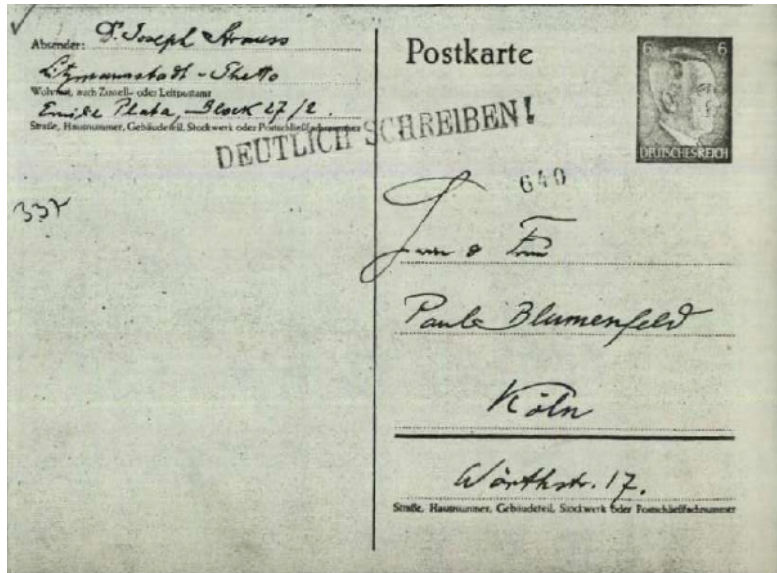 Absender: Dr. Joseph Strauss
Litzmannstadt - Ghetto
Wohnort, auch Zustell- oder Leitpostamt
Block 27/2.
Straße, Hausnummer, Gebäudeteil, Stockwerk oder Postschließfachnummer
Postkarte
6 6
DEUTSCHES REICH
DEUTLICH SCHREIBEN!
640
337
Frau
Paula Blumenfeld
Köln
Wörthstr. 17.
Straße, Hausnummer, Gebäudeteil, Stockwerk oder Postschließfachnummer